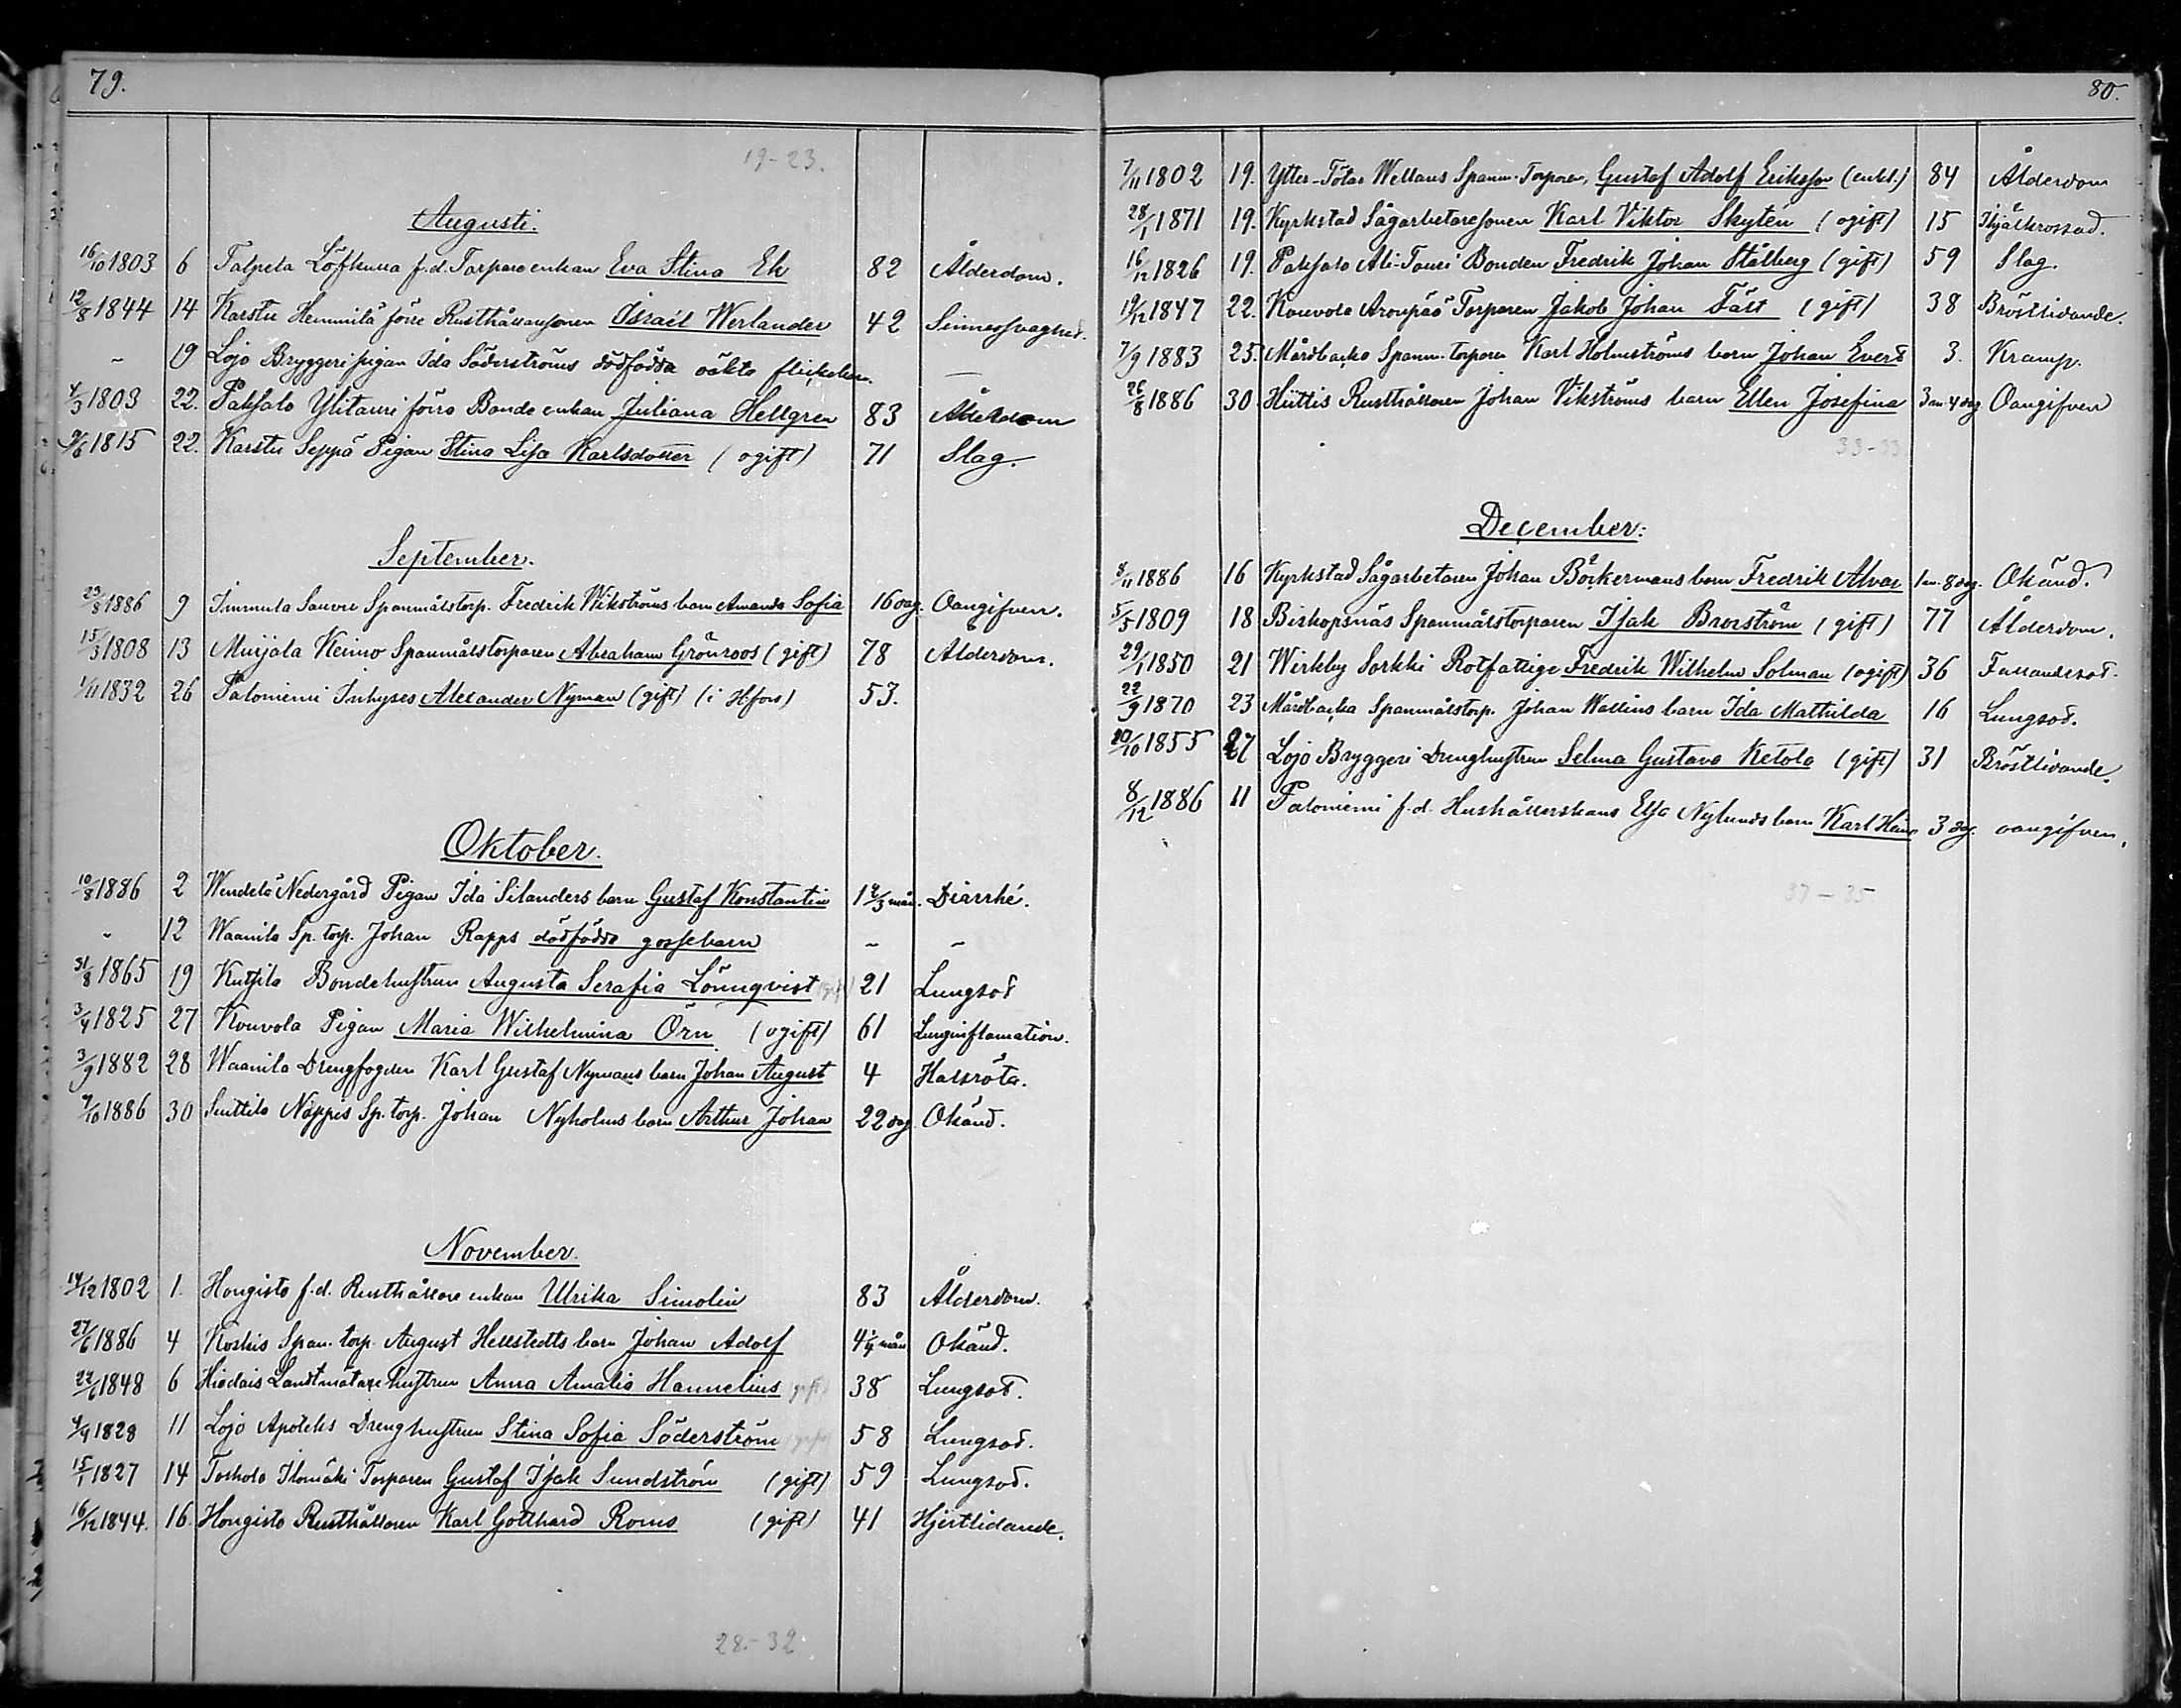 79.
19-23.
Augusti.
16/10 1803 6 Talpela Löfkulla f.d. Torpare enkan Eva Stina Ek 82 Ålderdom.
12/8 1844 14 Karstu Hemmilä förre Rusthållaresonen Israél Werlander 42 Sinnessvaghet.
" 19 Lojo Bryggeri pigan Ida Söderströms dödfödda oäkta flickebarn. —
4/3 1803 22. Paksalo Ylitauri förra Bonde enkan Juliana Hellgren 83 Ålderdom
9/6 1815 22. Karstu Seppä Pigan Stina Lisa Karlsdotter (ogift) 71 Slag.
September.
23/8 1886 9 Immula Sauvu Spanmålstorp. Fredrik Wikströms barn Amanda Sofia 16 dag. Oangifven.
15/3 1808 13 Muijala Keimo Spanmålstorparen Abraham Grönroos (gift) 78 Ålderdom.
1/11 1832 26 Paloniemi Inhyses Alexander Nyman (gift) (i H:fors) 53.
Oktober.
10/8 1886 2 Wendelä Nedergård Pigan Ida Silanders barn Gustaf Konstantin 1 2/3 mån. Diarrhé.
" 12 Waanila Sp. torp. Johan Rapps dödfödda gossebarn " "
31/8 1865 19 Kutsila Bondehustrun Augusta Serafia Lönnqvist (gift) 21 Lungsot
3/4 1825 27 Kouvola Pigan Maria Wilhelmina Örn (ogift) 61 Lunginflamation.
3/9 1882 28 Waanila Drengfogden Karl Gustaf Nymans barn Johan August 4 Halsröta.
7/10 1886 30 Suittila Näppis Sp. torp. Johan Nyholms barn Arthur Johan 22 dag. Okänd.
November.
14/12 1802 1. Hongisto f.d. Rusthållare enkan Ulrika Simolin 83 Ålderdom.
27/6 1886 4 Koskis Span. torp. August Hellstedts barn Johan Adolf 4 1/4 mån Okänd.
22/6 1848 6 Hiidais Landtmätare hustrun Anna Amalia Hannelius (gift) 38 Lungsot.
4/4 1828 11 Lojo Apoteks Drenghustrun Stina Sofia Söderström (gift) 58 Lungsot.
15/1 1827 14 Torhola Ilomäki Torparen Gustaf Isak Sundström (gift) 59 Lungsot.
16/12 1844. 16. Hongisto Rusthållaren Karl Gotthard Roms (gift) 41 Hjertlidande.
28.-32
80.
7/11 1802 19. Ytter-Tötar Wellans Spanm. Torparen, Gustaf Adolf Eriksson (enkl.) 84 Ålderdom
28/1 1871 19. Kyrkstad Sågarbetaresonen Karl Viktor Skytén (ogift) 15 Ihjälkrossad.
16/12 1826 19. Paksalo Ali-Tauri Bonden Fredrik Johan Stålberg (gift) 59 Slag.
19/12 1847 22. Kouvola Aronpää Torparen Jakob Johan Fält (gift) 38 Bröstlidande.
7/9 1883 25. Mårdbacka Spanm. torparen Karl Holmströms barn Johan Evert 3. Kramp.
26/8 1886 30. Hiittis Rusthållaren Johan Vikströms barn Ellen Josefina 3 m. 4 dag Oangifven
33-33
December:
8/11 1886 16 Kyrkstad Sågarbetaren Johan Böckermans barn Fredrik Alvar 1 m. 8 dag. Okänd.
5/5 1809 18 Biskopsnäs Spanmålstorparen Isak Brorström (gift) 77 Ålderdom.
29/1 1850 21 Wirkby Sorkki Rotfattige Fredrik Wilhelm Solman (ogift) 36 Fallandesot.
22/9 1870 23 Mårdbacka Spanmålstorp. Johan Wallins barn Ida Mathilda 16 Lungsot.
20/10 1855 27 Lojo Bryggeri Drenghustrun Selma Gustava Ketola (gift) 31 Bröstlidande.
8/12 1886 11 Paloniemi f.d. Hushållerskans Elsa Nylunds barn Karl 3 dag. oangifven.
37-35